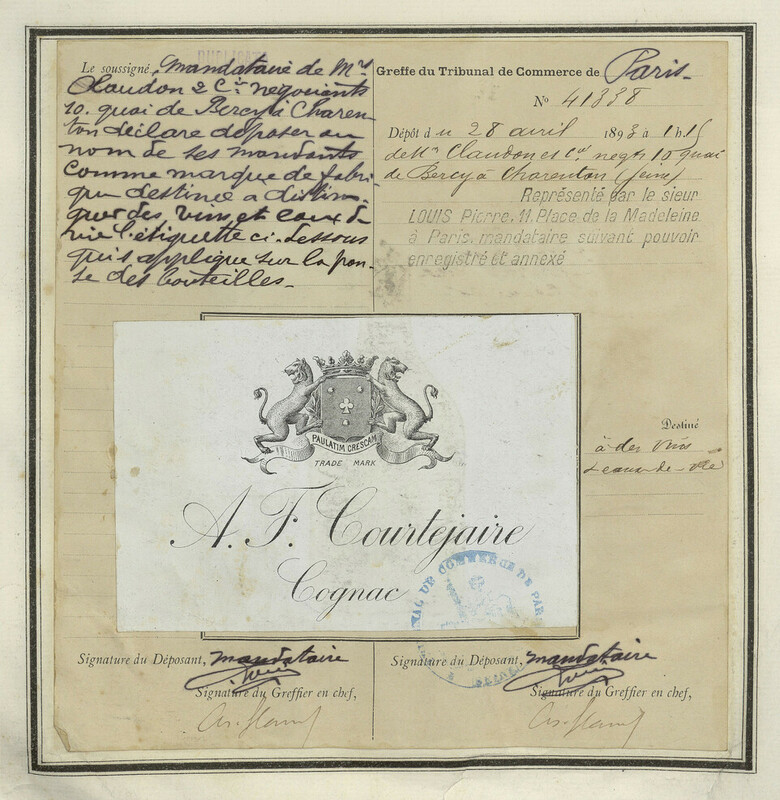 Le soussigné, mandataire de Mrs
Claudon & Cie négociants
10. quai de Bercy à Charen-
ton déclare déposer au
nom de ses mandants
comme marque de fabri-
que destinée à distin-
guer des vins et eaux de
vie l'étiquette ci-dessous
qui s'applique sur la pan-
se des bouteilles.-
Greffe du Tribunal de Commerce de Paris-
No 41338
Dépôt du 28 avril 1893 à 1h 15
de Mm Claudon et Cie negts 10 quai
de Bercy à Charenton (Seine)
Représenté par le sieur
LOUIS Pierre, 11, Place de la Madeleine
à Paris, mandataire suivant pouvoir
enregistré et annexé
Destiné
à des vins
& eaux-de-vie
PAULATIM CRESCAM
TRADE MARK
A. F. Courtejaire
Cognac
NAL DE COMMERCE DE PAR
Signature du Déposant, mandataire
Signature du Greffier en chef,
Signature du Déposant, mandataire
Signature du Greffier en chef,